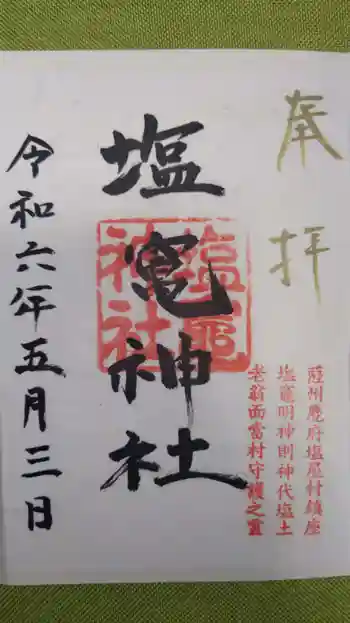 奉拝
薩州麑府塩屋村鎮座
塩竈明神則神代塩土
老翁而當村守護之靈
塩竈神社
塩竈神社
令和六年五月三日